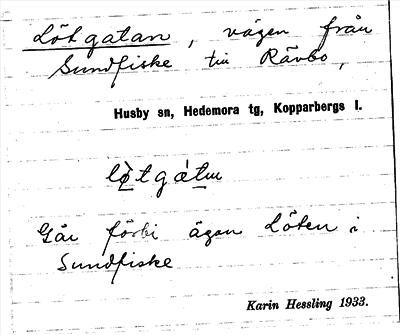 Lötgatan, vägen från
Sundfiske till Rävbo,
Husby sn, Hedemora tg, Kopparbergs l.
Går förbi ägan Löten i
Sundfiske
Karin Hessling 1933.